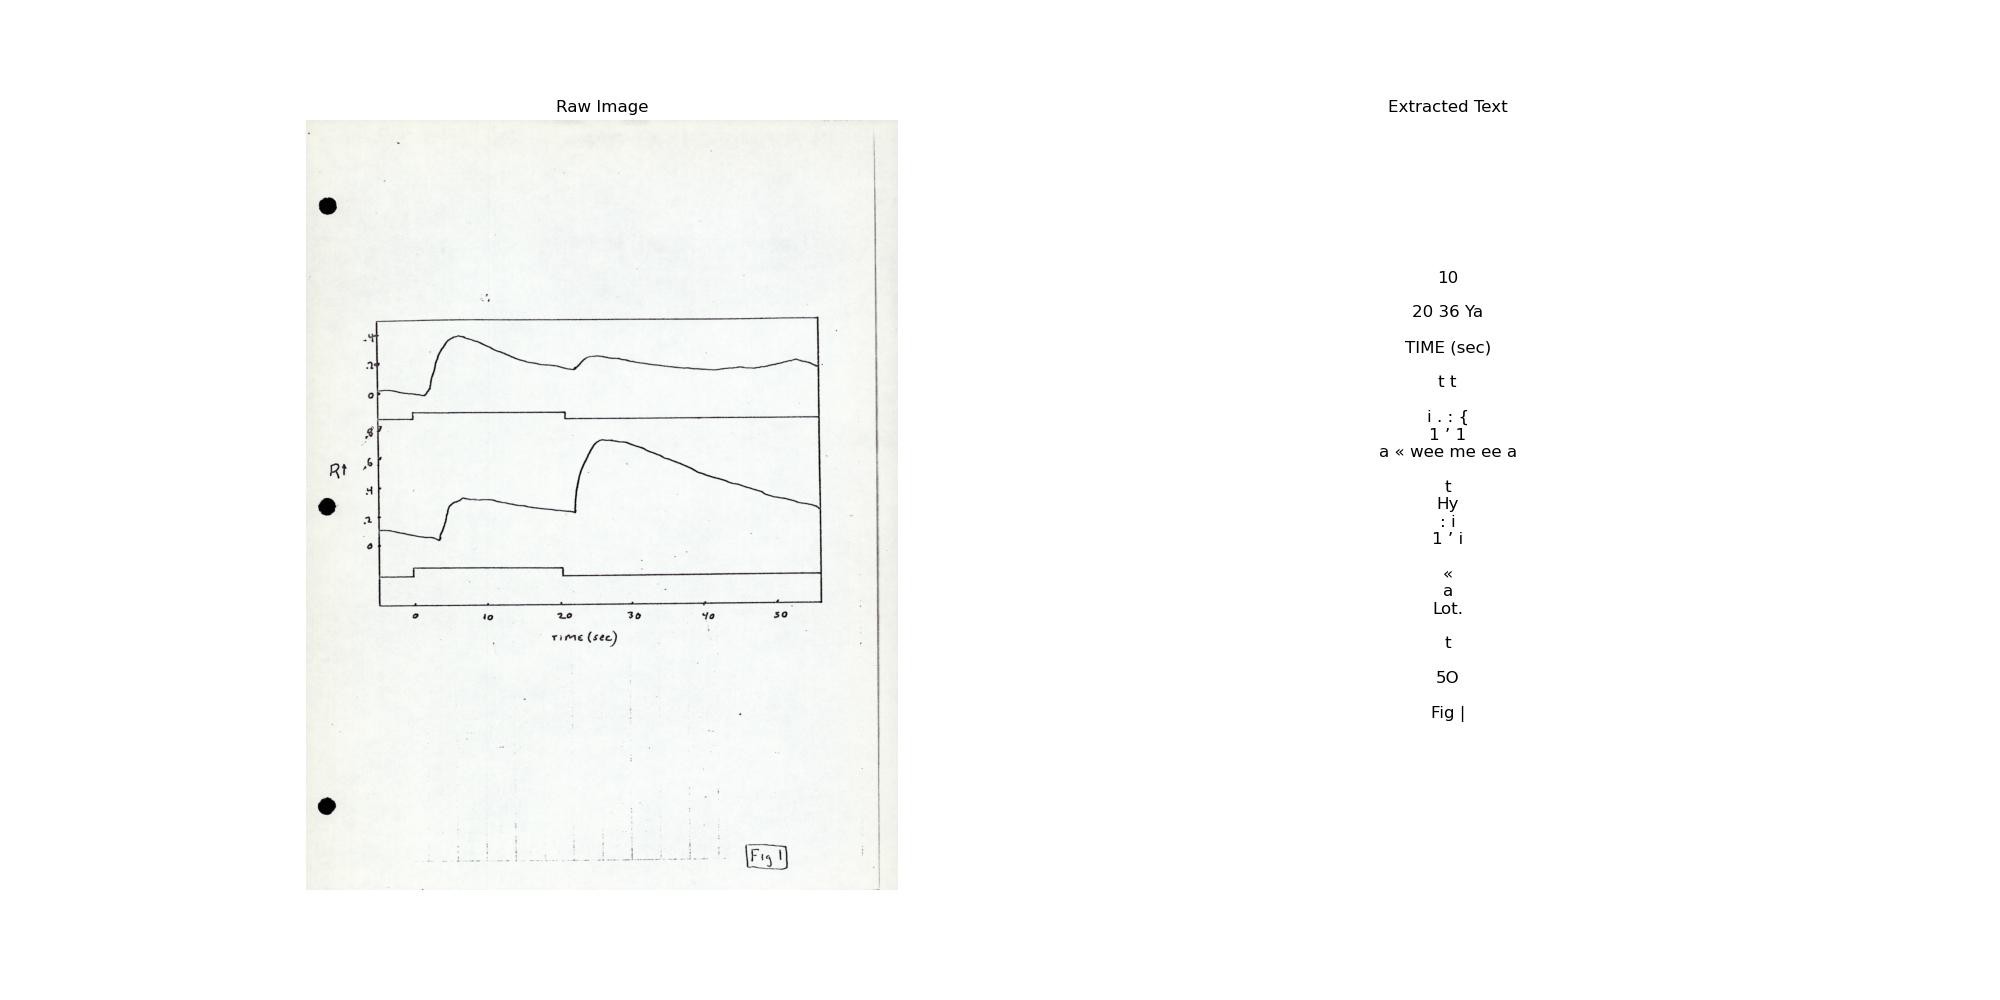 Raw Image
.4
.2
0
.8
R↑
.6
.4
.2
0
0 10 20 30 40 50
TIME (sec)
Fig 1
Extracted Text
10
20 36 Ya
TIME (sec)
t t
i . : {
1 ’ 1
a « wee me ee a
t
Hy
: i
1 ’ i
«
a
Lot.
t
5O
Fig |